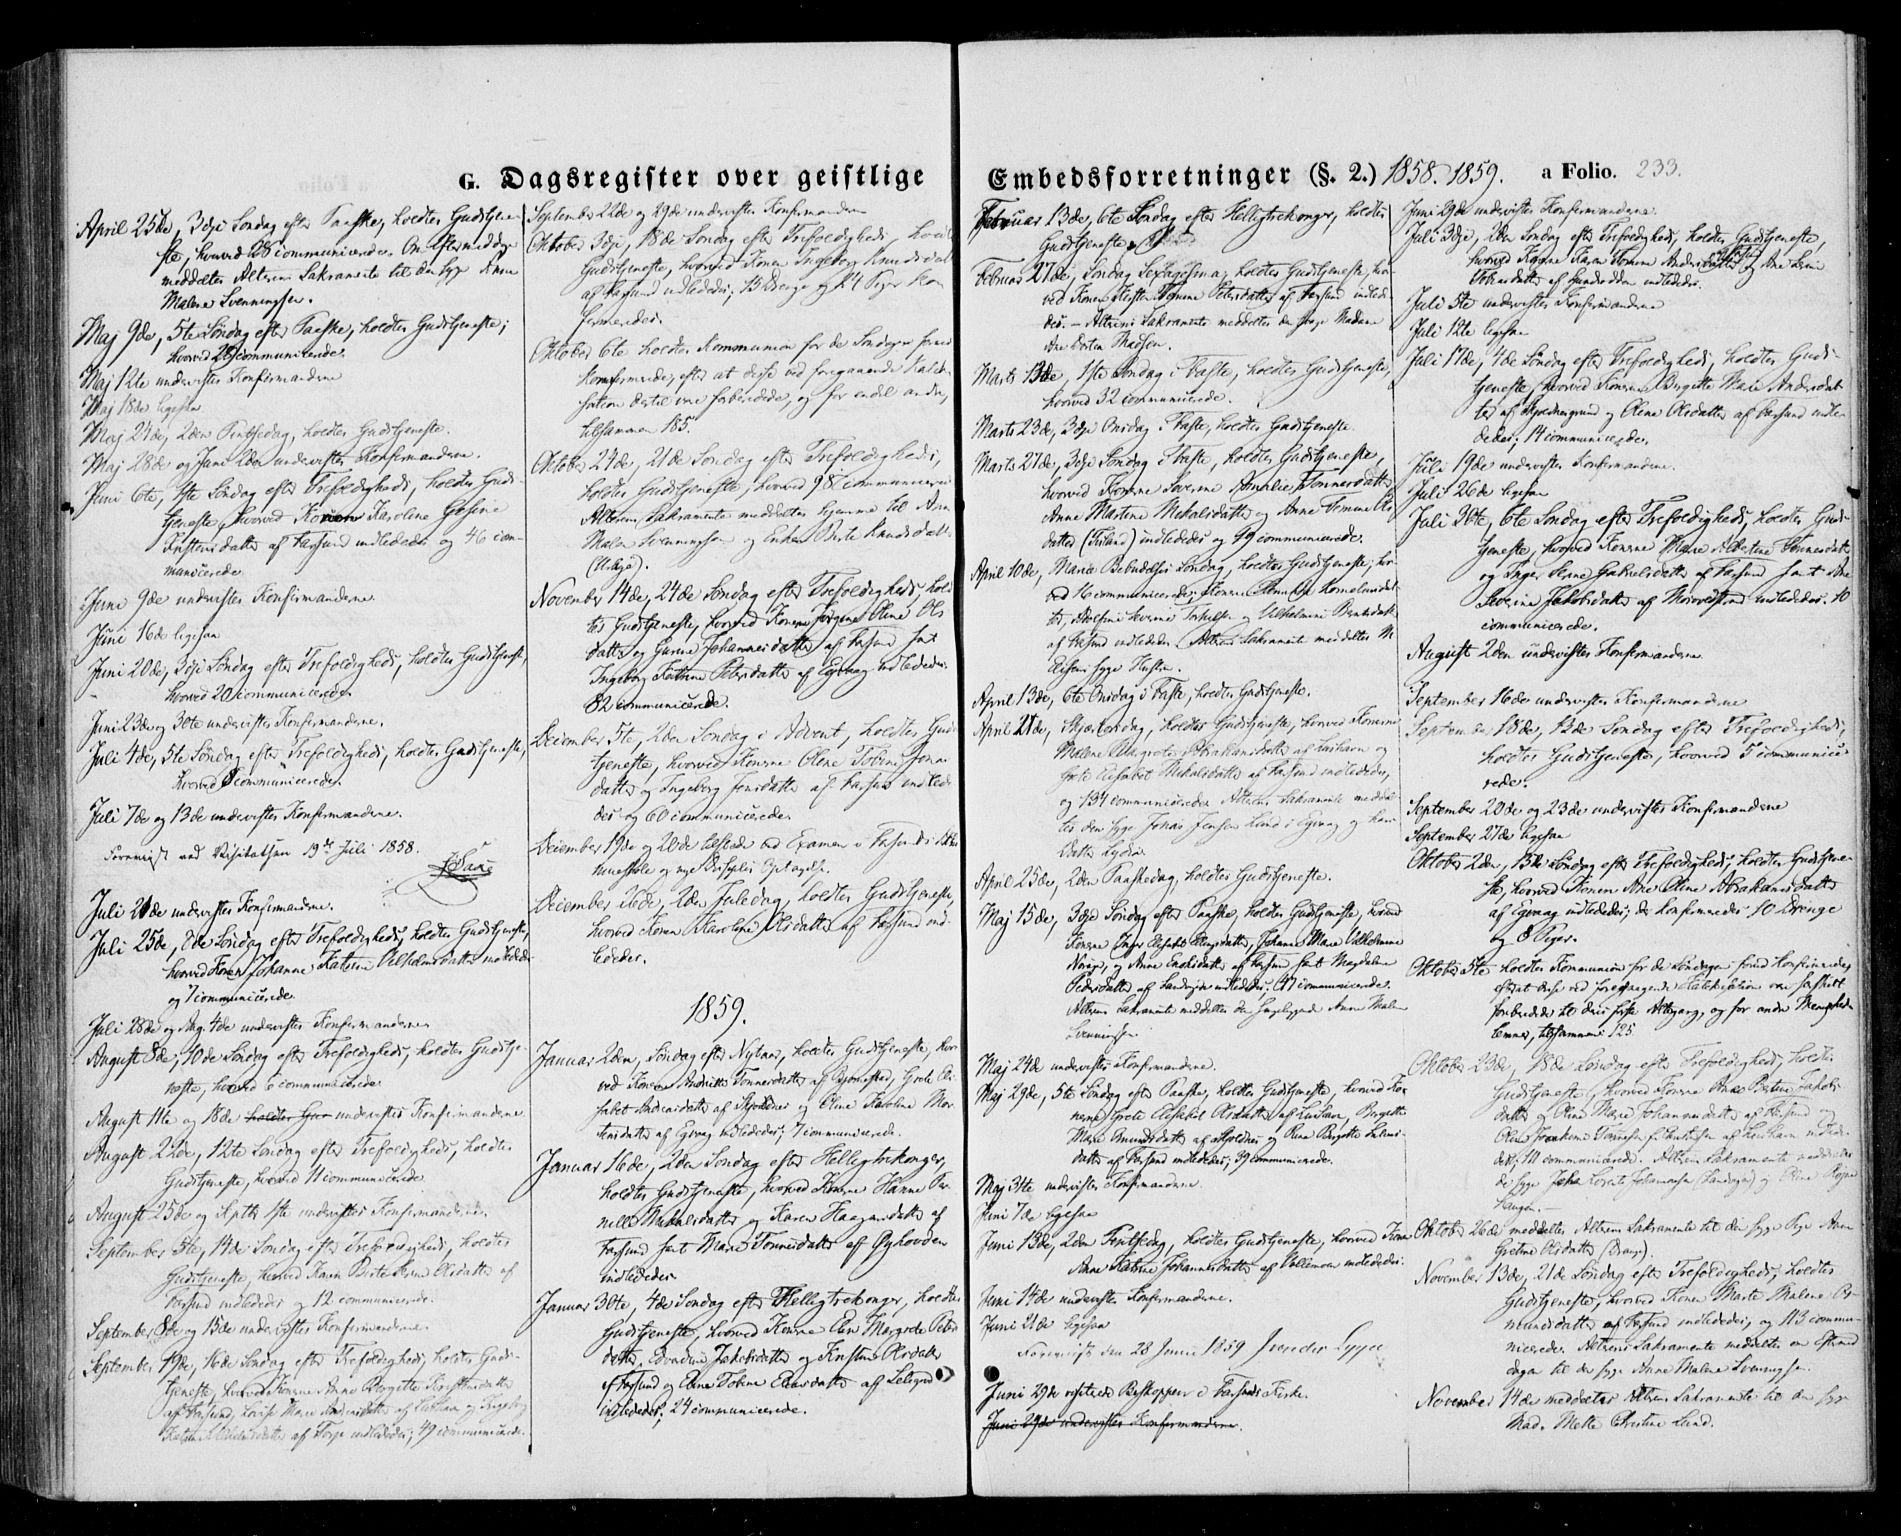 G. Dagsregister over geistlige
April 25de, 3die Søndag efter Paaske, holdtes Gudstjene-
ste, hvorved 28 communicerede. Om Eftermiddagen
meddeltes Alterens Sakramente til den syge Anne
Malene Svenningsen.
Maj 9de, 5te Søndag efter Paaske, holdtes Gudstjeneste,
hvorved 29 communicerede.
Maj 12te undervistes Konfirmanderne
Maj 18de ligesaa
Maj 24de, 2den Pintsedag, holdtes Gudstjeneste.
Maj 28de og Juni 2den undervistes Konfirmanderne.
Juni 6te, 1ste Søndag efter Trefoldigheds, holdtes Guds-
tjeneste, hvorved Konen Karoline Gesine
Kristensdatter af Farsund indlededes og 46 com-
municerede
Juni 9de undervistes Konfirmanderne.
Juni 16de ligesaa
Juni 20de, 3die Søndag efter Trefoldigheds, holdtes Gudstjeneste,
hvorved 20 communicerede
Juni 23de og 30te undervistes Konfirmanderne.
Juli 4de, 5te Søndag efter Trefoldigheds, holdtes Gudstjeneste,
hvorved 8 communicerede.
Juli 7de og 13de undervistes Konfirmanderne.
Foreviist ved Visitatsen 19de Juli 1858.
Juli 21de undervistes Konfirmanderne.
Juli 25de, 8de Søndag efter Trefoldigheds, holdtes Gudstjeneste,
hvorved Konen Johanne Katrine Vilhelmsdatter indlededes
og 7 communicerede
Juli 28de og Aug. 4de undervistes Konfirmanderne
August 8de, 10de Søndag efter Trefoldigheds, holdtes Gudstje-
neste, hvorved 6 communicerede
August 11te og 18de holdtes Gud undervistes Konfirmanderne
August 22de, 12te Søndag efter Trefoldigheds, holdtes
Gudstjeneste, hvorved 11 communicerede
August 25de og Septbr 1ste undervistes Konfirmanderne.
September 5te, 14de Søndag efter Trefoldigheds, holdtes
Gudstjeneste, hvorved Konen Berte Olsdatter af
Farsund indlededes og 12 communicerede.
September 8de og 15de undervistes Konfirmanderne.
September 19de, 16de Søndag efter Trefoldigheds, holdtes Guds-
tjeneste, hvorved Konerne Anne Bergitte Kristensdatter
af Farsund, Lovise Marie Andreasdatter af og Ingeborg
af Torp indlededes; 49 communicerede.
September 22de og 29de undervistes Konfirmanderne
Oktober 3die, 18de Søndag efter Trefoldigheds, holdtes
Gudstjeneste, hvorved Konen Ingeborg Knudsdatter
af Farsund indlededes; 13 Drenge og 24 Piger kon-
firmeredes.
Oktober 6te holdtes Kommunion for de Søndagen forud
konfirmerede, efter at disse ved foregaaende Kateki-
sation dertil vare forberedede, og for endel andre,
tilsammen 185.
Oktober 24de, 21de Søndag efter Trefoldigheds,
holdtes Gudstjeneste, hvorved 98 communicerede.
Alterens Sakramente meddeltes hjemme til Anne
Malene Svenningsen og Enken Berte Knudsdatter
November 14de, 24de Søndag efter Trefoldigheds, hold-
tes Gudstjeneste, hvorved Konerne Jørgine Oline Ols-
datter og Gurine Johannesdatter af Farsund samt
Ingeborg Katrine Petersdatter af Egvaag indlededes.
82 communicerede.
December 5te, 2den Søndag i Advent, holdtes Guds-
tjeneste, hvorved Konerne Oline Tobine Jonas-
datter og Ingeborg Jensdatter af Farsund indlede-
des og 60 communicerede.
December 19de og 20de tilstede ved Examen i Farsunds Alm-
ueskole og nye Disciples Optagelse.
December 26de, 2den Juledag, holdtes Gudstjeneste,
hvorved Konen Karoline Olsdatter af Farsund ind-
lededes.
1859.
Januar 2den, Søndag efter Nytaar, holdtes Gudstjeneste, hvor-
ved Konerne Andrine Tønnesdatter af Bjørnestad, Grete Eli-
sabet Andreasdatter af Skjolnes og Oline Karoline Mor-
tensdatter af Egvaag indlededes; 7 communicerede.
Januar 16de, 2den Søndag efter Helligtrekonger,
holdtes Gudstjeneste, hvorved Konerne Hanne Per-
nille Mikkelsdatter og Karen Haagensdatter af
Farsund samt Marie Tønnesdatter af Øyhovden
indlededes
Januar 30te, 4de Søndag efter Helligtrekonger, holdtes
Gudstjeneste, hvorved Konerne Ane Margrete Peters-
datter, Jakobsdatter og Kristine Olsdatter
af Farsund og Anne Tobine af
indlededes; 24 communicerede.
Embedsforretninger (§. 2.) 1858. 1859. a Folio. 233.
Februar 13de, 6te Søndag efter Helligtrekonger, holdtes
Gudstjeneste.
Februar 27de, Søndag Sexagesima, holdtes Gudstjeneste, hvor-
ved Konen Tomine Petersdatter af Farsund indlede-
des. - Alterens Sakramente meddeltes den syge Madame
Ane Dortea Madsen.
Marts 13de, 1ste Søndag i Faste, holdtes Gudstjeneste,
hvorved 32 communicerede.
Marts 23de, 3die Onsdag i Faste, holdtes Gudstjeneste.
Marts 27de, 3die Søndag i Faste, holdtes Gudstjeneste,
hvorved Konerne Severine Amalie Tønnesdatter
Anne Martine Mikalsdatter og Anne Ols-
datter indlededes og 49 communicerede.
April 10de, Mariæ Bebudelses Søndag, holdtes Gudstjeneste, hvor-
ved 16 communicerede; Konerne Kornelius-
datter, Adolfine Severine Torkelsen og Vilhelmine Berntsdatter
af Farsund indlededes. Alterens Sakramente meddeltes N.
Eliesens syge Hustru.
April 13de, 6te Onsdag i Faste, holdtes Gudstjeneste.
April 21de, Skjærtorsdag, holdtes Gudstjeneste, hvorved Konerne
Malene Margrete Abrahamsdatter af Loshavn og
Grete Elisabet Mikalsdatter af Farsund indlededes,
og 134 communicerede. Alterens Sakramente meddel-
tes den syge Jonas Jensen Lund i Egvaag og hans
Datter Lydia.
April 25de, 2den Paaskedag, holdtes Gudstjeneste.
Maj 15de, 3die Søndag efter Paaske, holdtes Gudstjeneste, hvorved
Konerne Inger Elisabet Jensdatter, Johanne Marie Vilhelmine
og Anne af Farsund samt Magdalene
Pedersdatter af indlededes; 47 communicerede.
Alterens Sakramente meddeltes den sengeliggende Anne Malene
Svenningsen
Maj 24de undervistes Konfirmanderne.
Maj 29de, 5te Søndag efter Paaske, holdtes Gudstjeneste, hvorved Ko-
nerne Grete Elisabet Olsdatter af Loshavn, Bergitte
Marie Amundsdatter af Skjolnes og Oline Bergitte
datter af Farsund indlededes; 39 communicerede.
Maj 31te undervistes Konfirmanderne.
Juni 7de ligesaa
Juni 13de, 2den Pintsedag, holdtes Gudstjeneste, hvorved Konen
Anne Katrine Johannesdatter af indlededes.
Juni 14de undervistes Konfirmanderne.
Juni 21de ligesaa
Foreviist den 28 Junii 1859
Juni 29de visiterede Biskoppen i Farsunds Kirke.
Juni 29de undervistes Konfirmanderne.
Juni 29de undervistes Konfirmanderne.
Juli 3die, 2den Søndag efter Trefoldigheds, holdtes Gudstjeneste,
hvorved Konerne Karen Tomine Andreasdatter og Ane Serine
af indlededes.
Juli 5te undervistes Konfirmanderne
Juli 12te ligesaa
Juli 17de, 4de Søndag efter Trefoldigheds, holdtes Guds-
tjeneste, hvorved Konerne Bergitte Marie Andersdat-
ter af og Oline Olsdatter af Farsund indle-
dedes; 14 communicerede.
Juli 19de undervistes Konfirmanderne.
Juli 26de ligesaa
Juli 30te, 6te Søndag efter Trefoldigheds, holdtes Guds-
tjeneste, hvorved Konerne Marie Albertine Tønnesdatter
og Inger Serine Gabrielsdatter af Farsund samt Ane
Severine Jakobsdatter af indlededes. 10
communicerede.
August 2den undervistes Konfirmanderne
September 16de undervistes Konfirmanderne
September 18de, 13de Søndag efter Trefoldigheds,
holdtes Gudstjeneste, hvorved 5 communice-
rede.
September 20de og 23de undervistes Konfirmanderne
September 27de ligesaa
Oktober 2den, 15de Søndag efter Trefoldigheds, holdtes Gudstjene-
ste, hvorved Konen Ane Oline Abrahamsdatter
af Egvaag indlededes; der konfirmeredes 10 Drenge
og 8 Piger.
Oktober 5te holdtes Kommunion for de Søndagen forud Konfirmerede,
efterat disse ved foregaaende Katekisation vare særskilt
forberedede til deres første Altergang, og for andre Menigheds-
lemmer, tilsammen 125
Oktober 23de, 18de Søndag efter Trefoldigheds, holdtes
Gudstjeneste, hvorved Konerne Anne Bertine Jakobs-
datter og Oline Marie Johannesdatter af Farsund og
Oline Joakime Tønnesen f. af Loshavn indlede-
des; 111 communicerede. Alterens Sakramente meddeltes
de syge Johan Lovits Johannesen og Oline
Haugen.
Oktober 26de meddeltes Alterens Sakramente til den syge Pige Anne
Gurine Olsdatter
November 13de, 21de Søndag efter Trefoldigheds, holdtes
Gudstjeneste, hvorved Konen Marte Malene
mundsdatter af Farsund indlededes, og 113 commu-
nicerede. Alterens Sakramente meddeltes om Eftermid-
dagen til den syge Anne Malene Svenningsen.
November 14de meddeltes Alterens Sakramente til den syge
Mad. Mette Kristine Lund.